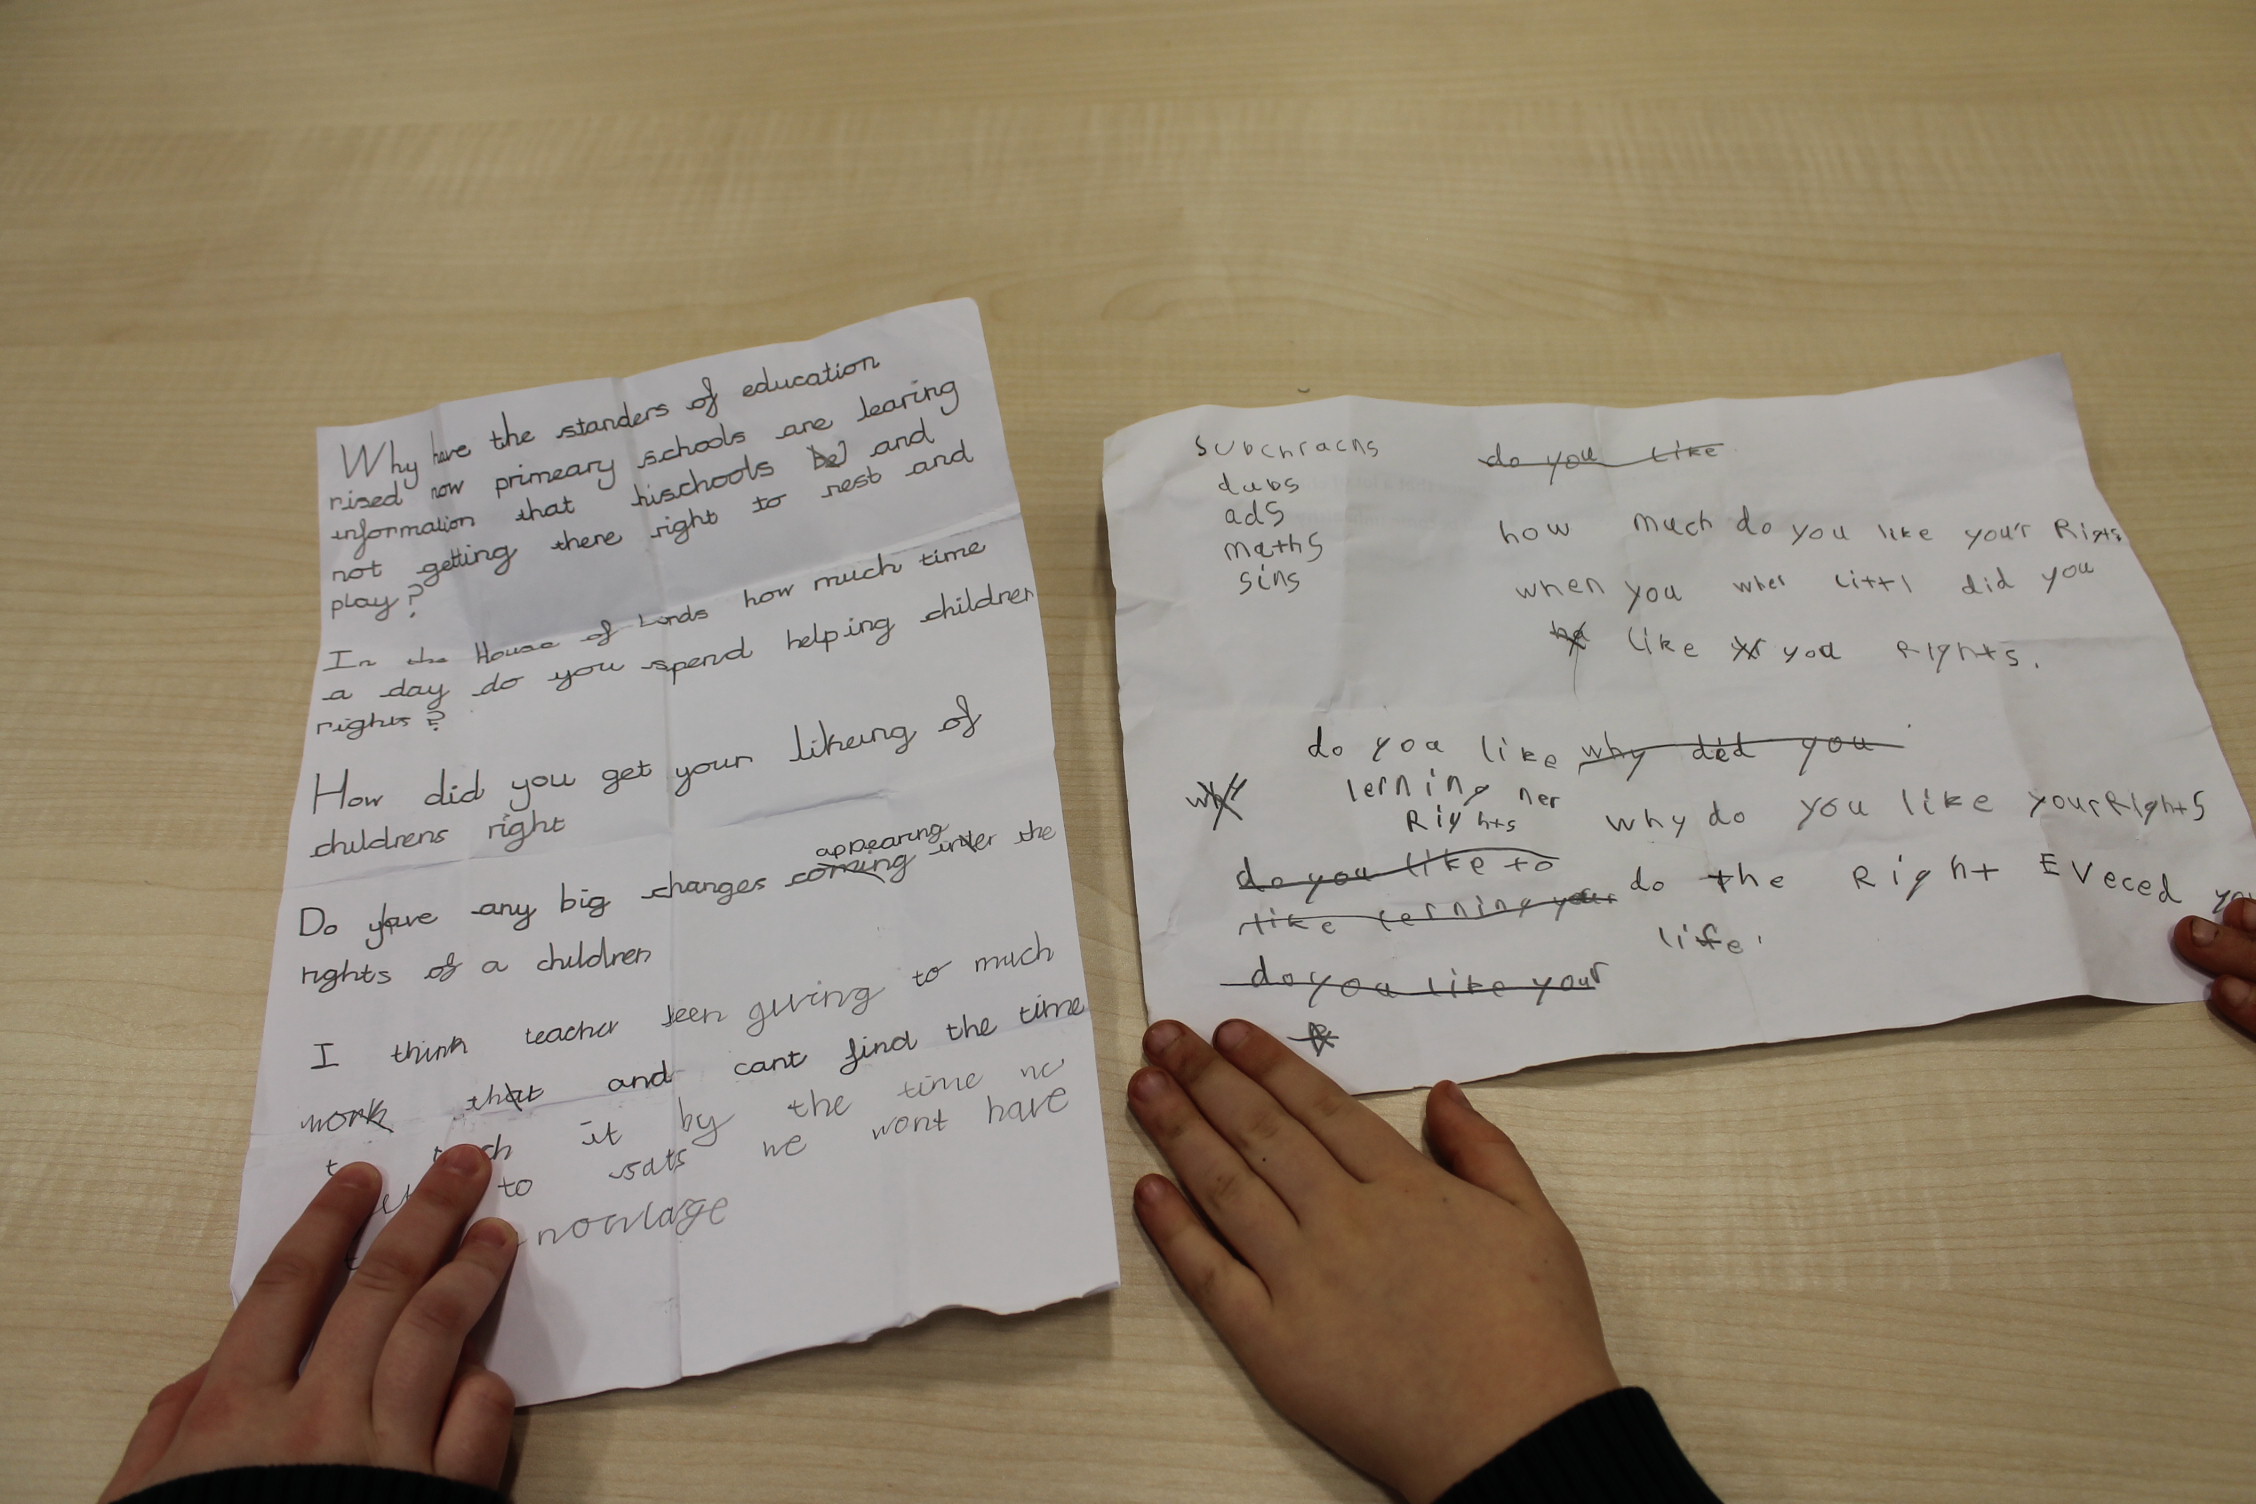 Why have the standers of education
rised now primeary schools are learing
information that hischools and
not getting there right to rest and
play?
In the House of Lords how much time
a day do you spend helping children
rights?
How did you get your likeing of
childrens right
appearing
Do have any big changes coming under the
rights of a children
I think teacher been giving to much
work that and cant find the time
it by the time
to sats we wont have
nowlage
Subchracns
dubs
ads
maths
sins
do you like
how much do you like your's Rights
when you wher littl did you
like you Rights.
do you like why did you
why
lerning her
Rights
why do you like your Rights
do you like to
like lerning your
do the Right Eveced
life.
do you like your